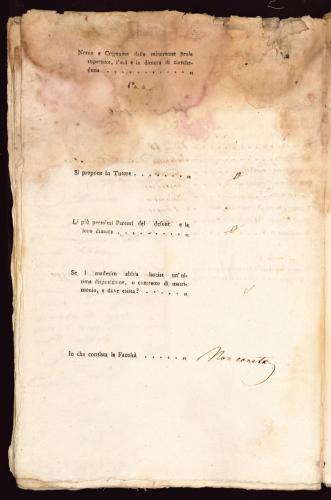 Nome e Cognome della minorenne Prole
superstite, l'età e la dimora di ciaschedu-
duna . . . . . . . . . . . „
Si propone in Tutore . . . . . . . „
Li più prossimi Parenti del defunt e la
loro dimora . . . . . . . . . . „
Se l medesim abbia lasciat un'ul-
tima disposizione, o contratto di matri-
monio, e dove esista? . . . . . . „
In che consista la Facoltà . . . . . . „ Non consta